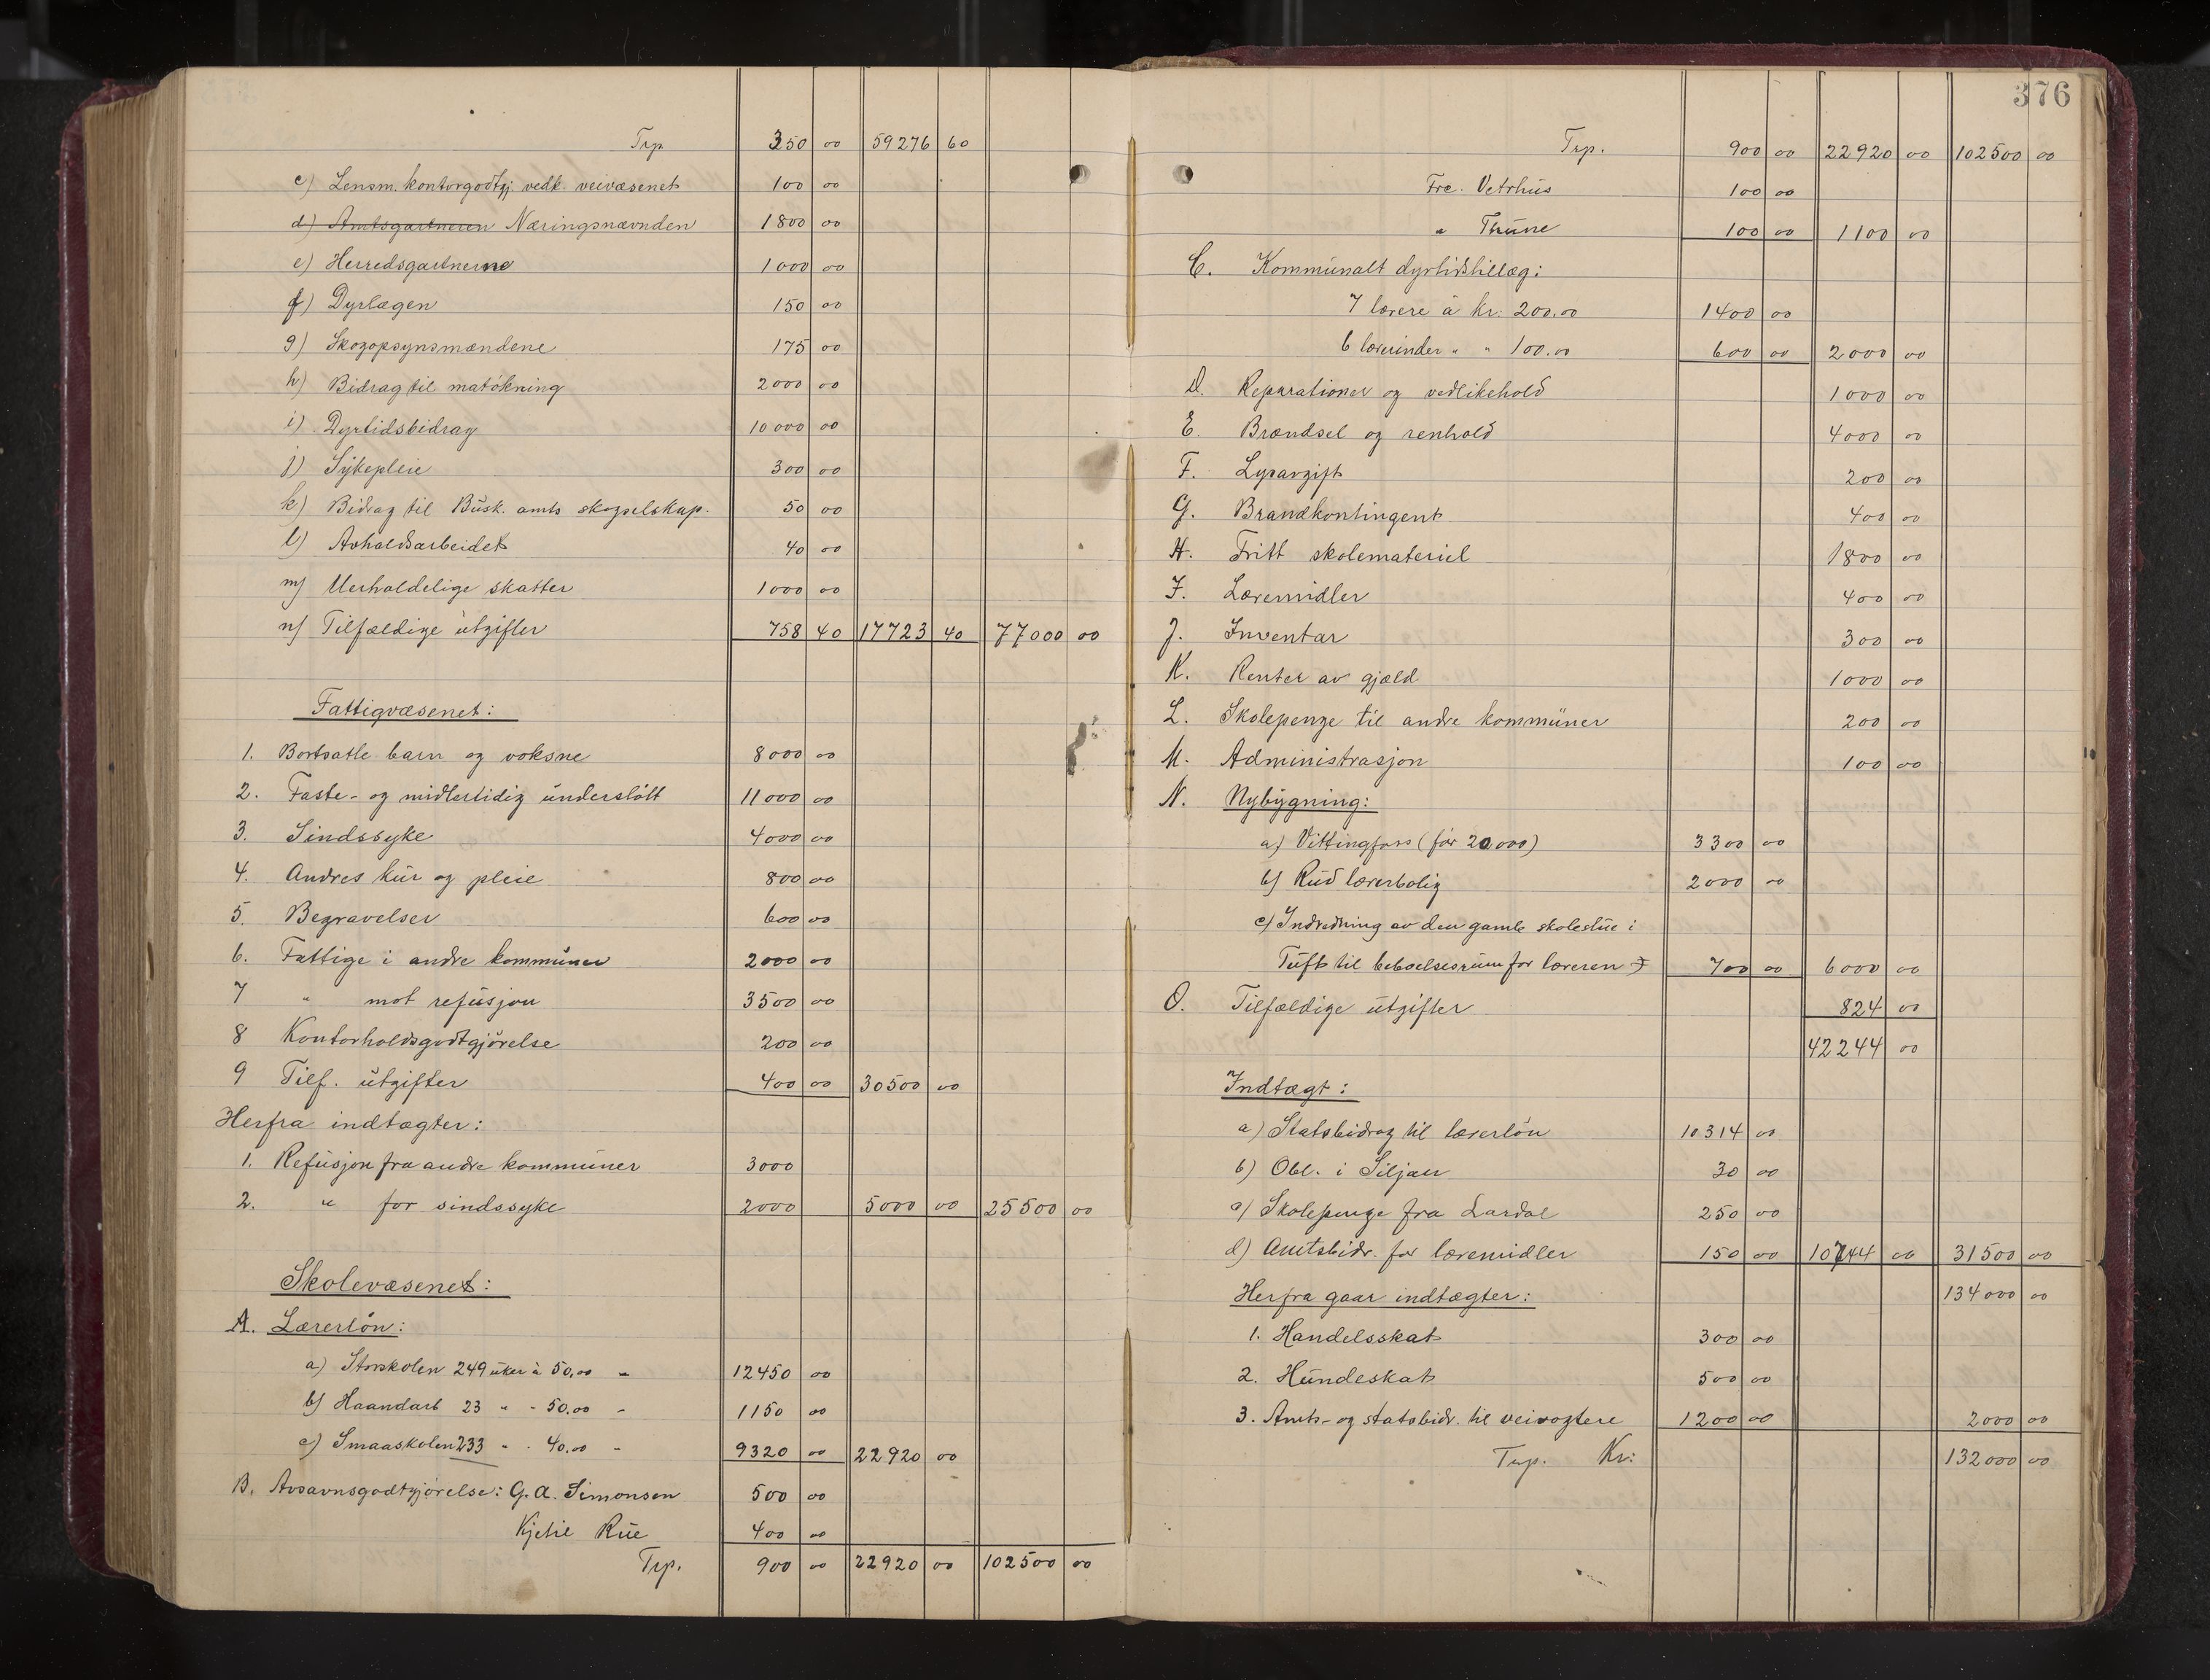 Trp 350 00 59276 60
c) Lensm. kontorgodtgj. vedk. veivæsenet 100 00
d) Amtsgartneren Næringsnævnden 1800 00
e) Herredsgartnerne 1000 00
f) Dyrlægen 150 00
g) Skogopsynsmændene 175 00
h) Bidrag til matökning 2000 00
i) Dyrtidsbidrag 10000 00
j) Sykepleie 300 00
k) Bidrag til Busk. amts skogselskap. 50 00
l) Avholdsarbeidet 40 00
m) Uerholdelige skatter 1000 00
n) Tilfældige utgifter 758 40 17723 40 77000 00
Fattigvæsenet:
1. Bortsatte barn og voksne 8000 00
2. Faste- og midlertidig understött 11000 00
3. Sindssyke 4000 00
4. Andres kur og pleie 800 00
5. Begravelser 600 00
6. Fattige i andre kommuner 2000 00
7 " mot refusjon 3500 00
8 Kontorholdsgodtgjörelse 200 00
9 Tilf. utgifter 400 00 30500 00
Herfra indtægter:
1. Refusjon fra andre kommuner 3000
2. " for sindssyke 2000 5000 00 25500 00
Skolevæsenet:
A. Lærerlön:
a) Storskolen 249 uker à 50,00 - 12450 00
b) Haandarb 23 " - 50.00 - 1150 00
c) Smaaskolen 233 - - 40.00 - 9320 00 22920 00
B. Avsavnsgodtgjörelse: G. A. Simonsen 500 00
Kjetil Rue 400 00
Trp. 900 00 22920 00 102500 00
376
Trp. 900 00 22920 00 102500 00
Frc. Vetrhus 100 00
" Thune 100 00 1100 00
C. Kommunalt dyrtidstillæg:
7 lærere à kr. 200.00 1400 00
6 lærerinder " " 100.00 600 00 2000 00
D. Reparationer og vedlikehold 1000 00
E. Brændsel og renhold 4000 00
F. Lysavgift 200 00
G. Brandkontingent 400 00
H. Fritt skolemateriel 1800 00
I. Læremidler 400 00
J. Inventar 300 00
K. Renter av gjæld 1000 00
L. Skolepenge til andre kommuner 200 00
M. Administrasjon 100 00
N. Nybygning:
a) Vittingfoss (för 20000) 3300 00
b) Rud lærerbolig 2000 00
c) Indredning av den gamle skolestue i
Tuft til beboelsesrum for læreren 700 00 6000 00
O. Tilfældige utgifter 824 00
42244 00
Indtægt:
a) Statsbidrag til lærerlön 10314 00
b) Obl. i Siljan 30 00
c) Skolepenge fra Lardal 250 00
d) Amtsbidr. for læremidler 150 00 10744 00 31500 00
Herfra gaar indtægter: 134000 00
1. Handelsskat 300 00
2. Hundeskat 500 00
3. Amts- og statsbidr. til veivogtere 1200 00 2000 00
Trp. Kr: 132000 00